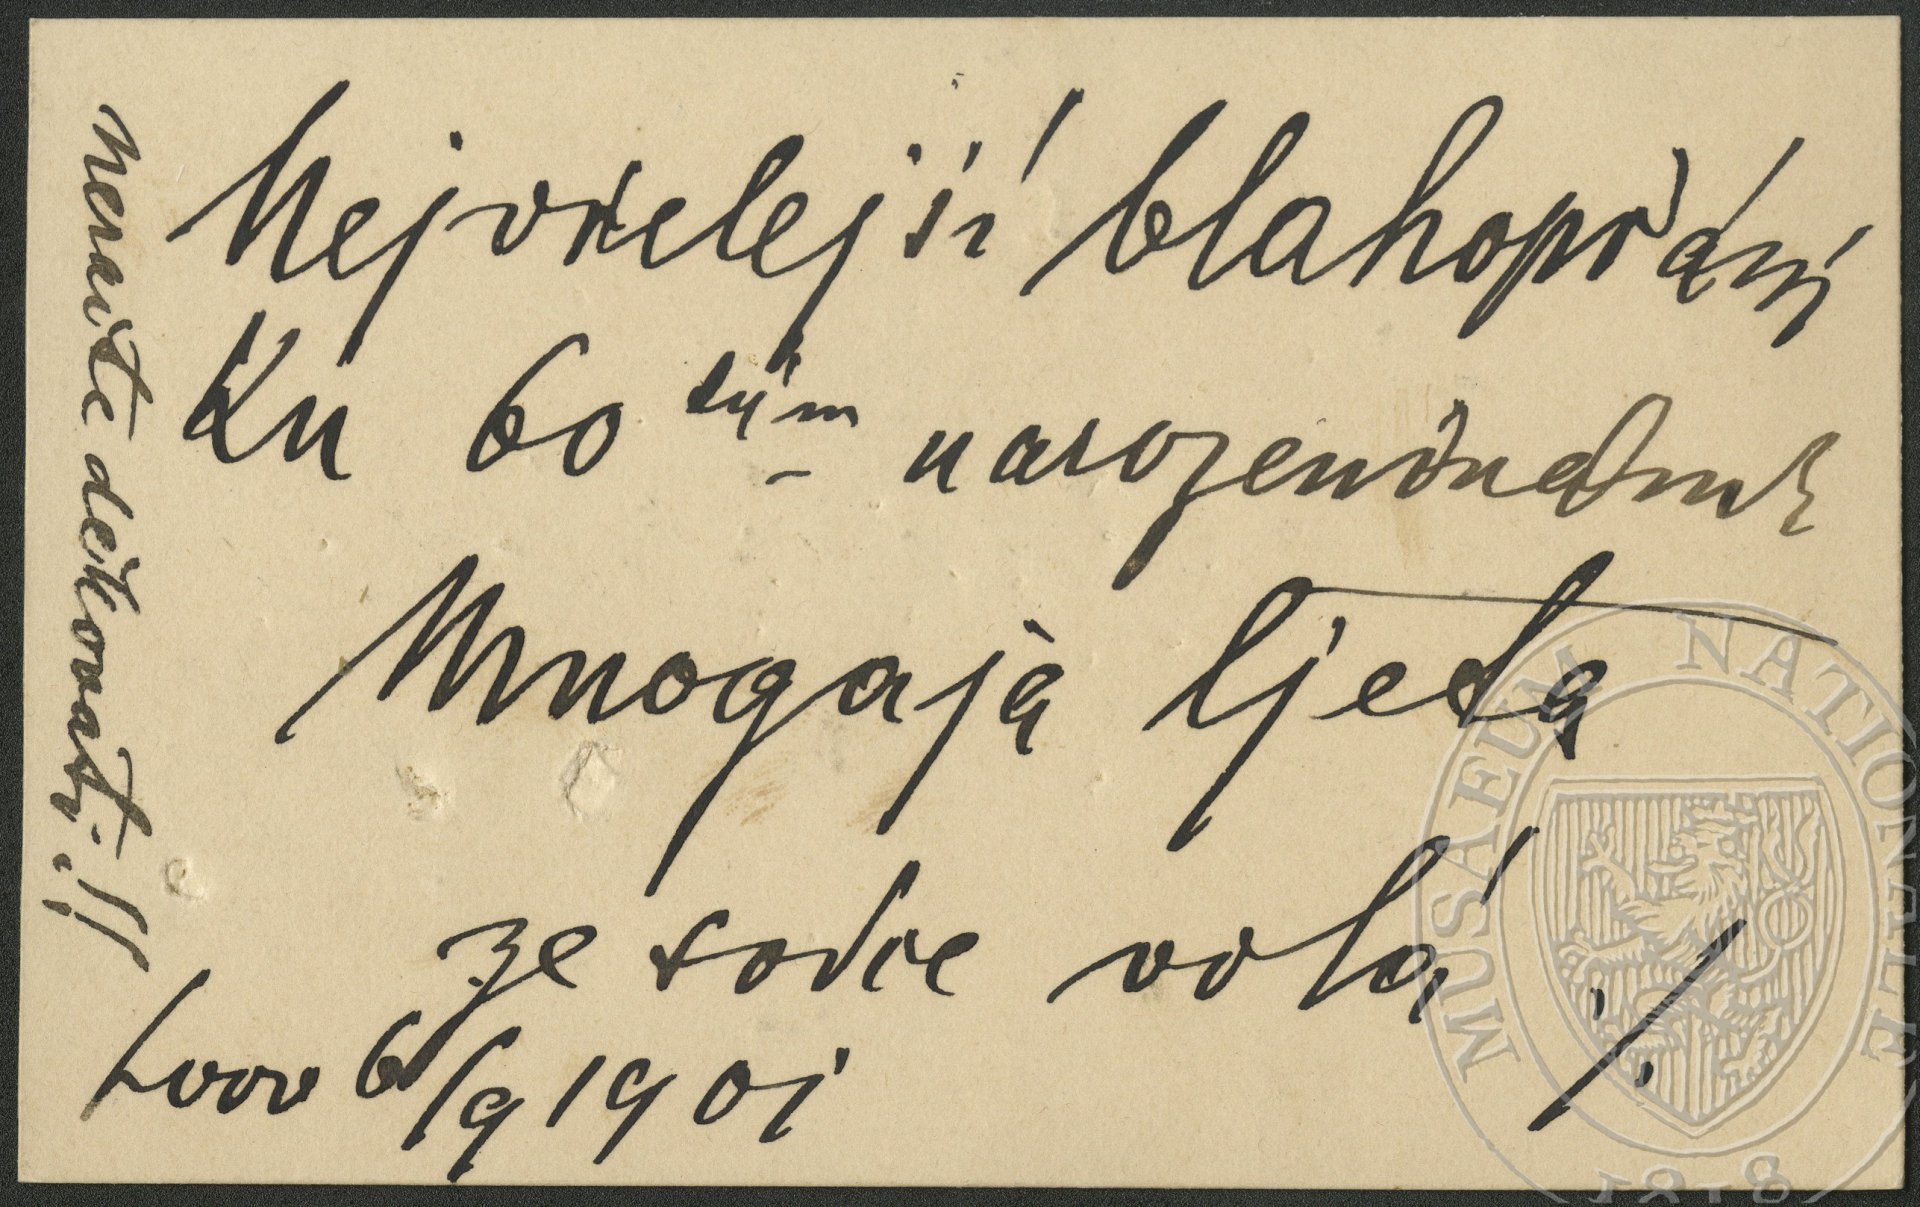 Nejvřelejší blahopřání
Ku 60 tým narozeninám
Mnogaja ljeta
ze srdce volá ./.
Lvov 6/9 1901
Neračte děkovati.!!
MUSAEUM NATIONALE
1818